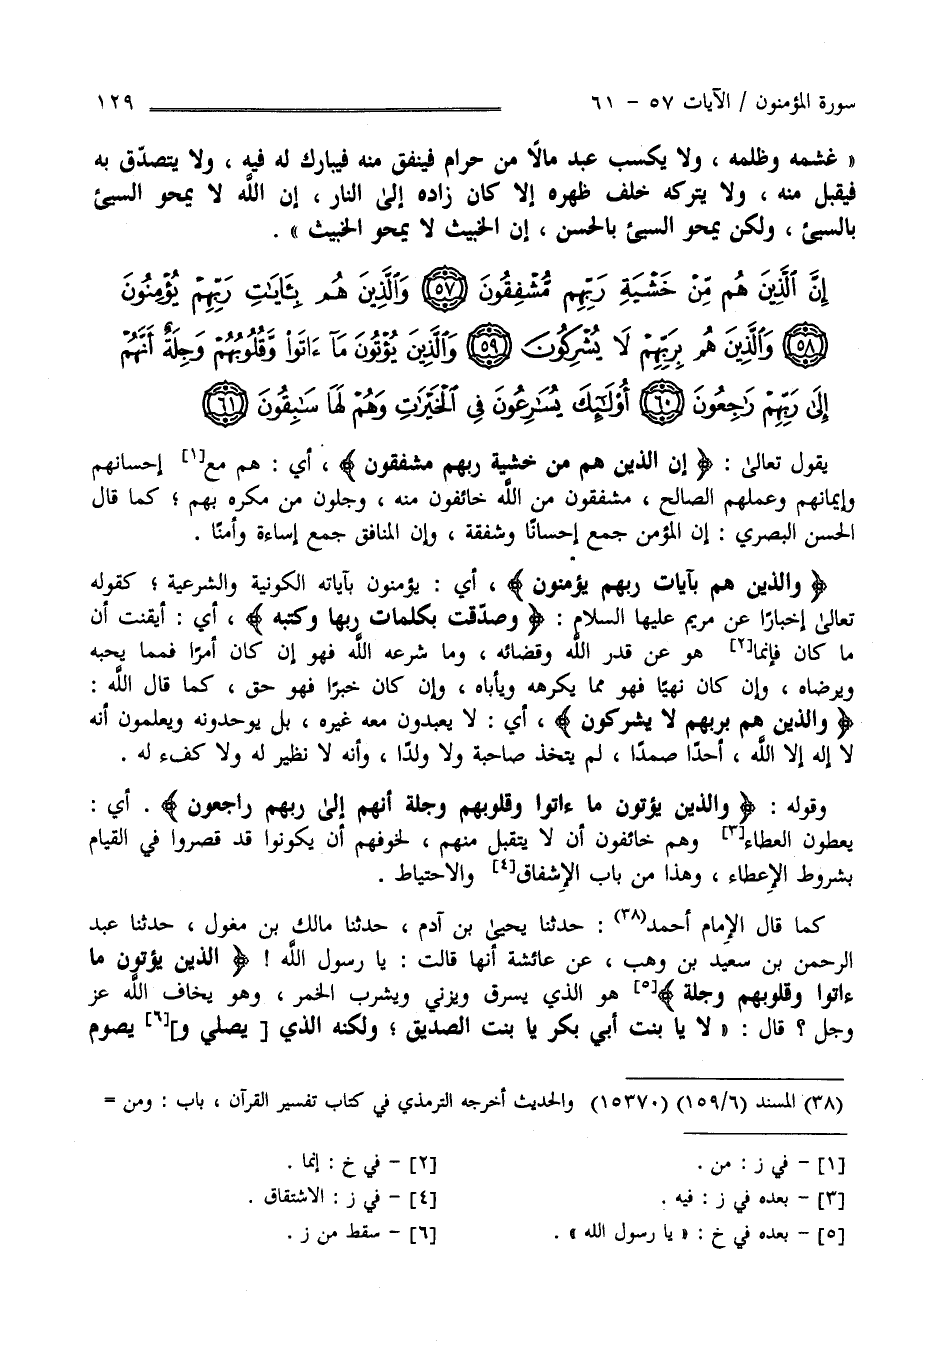 سورة المؤمنون / الآيات ٥٧ - ٦١ ١٢٩
« غشمه وظلمه ، ولا يكسب عبد مالًا من حرام فينفق منه فيبارك له فيه ، ولا يتصدّق به
فيقبل منه ، ولا يتركه خلف ظهره إلا كان زاده إلى النار ، إن اللَّه لا يمحو السيئ
بالسيئ ، ولكن يمحو السيئ بالحسن ، إن الخبيث لا يمحو الخبيث » .
إِنَّ ٱلَّذِينَ هُم مِّنْ خَشْيَةِ رَبِّهِم مُّشْفِقُونَ ٥٧ وَٱلَّذِينَ هُم بِـَٔايَٰتِ رَبِّهِمْ يُؤْمِنُونَ
٥٨ وَٱلَّذِينَ هُم بِرَبِّهِمْ لَا يُشْرِكُونَ ٥٩ وَٱلَّذِينَ يُؤْتُونَ مَآ ءَاتَوا۟ وَّقُلُوبُهُمْ وَجِلَةٌ أَنَّهُمْ
إِلَىٰ رَبِّهِمْ رَٰجِعُونَ ٦٠ أُو۟لَٰٓئِكَ يُسَٰرِعُونَ فِي ٱلْخَيْرَٰتِ وَهُمْ لَهَا سَٰبِقُونَ ٦١
يقول تعالى : ﴿ إن الذين هم من خشية ربهم مشفقون ﴾ ، أي : هم مع[١] إحسانهم
وإيمانهم وعملهم الصالح ، مشفقون من اللَّه خائفون منه ، وجلون من مكره بهم ؛ كما قال
الحسن البصري : إن المؤمن جمع إحسانًا وشفقة ، وإن المنافق جمع إساءة وأمنًا .
﴿ والذين هم بآيات ربهم يؤمنون ﴾ ، أي : يؤمنون بآياته الكونية والشرعية ؛ كقوله
تعالى إخبارًا عن مريم عليها السلام : ﴿ وصدّقت بكلمات ربها وكتبه ﴾ ، أي : أيقنت أن
ما كان فإنما[٢] هو عن قدر اللَّه وقضائه ، وما شرعه اللَّه فهو إن كان أمرًا فمما يحبه
ويرضاه ، وإن كان نهيًا فهو مما يكرهه ويأباه ، وإن كان خبرًا فهو حق ، كما قال اللَّه :
﴿ والذين هم بربهم لا يشركون ﴾ ، أي : لا يعبدون معه غيره ، بل يوحدونه ويعلمون أنه
لا إله إلا اللَّه ، أحدًا صمدًا ، لم يتخذ صاحبة ولا ولدًا ، وأنه لا نظير له ولا كفء له .
وقوله : ﴿ والذين يؤتون ما ءاتوا وقلوبهم وجلة أنهم إلى ربهم راجعون ﴾ . أي :
يعطون العطاء[٣] وهم خائفون أن لا يتقبل منهم ، لخوفهم أن يكونوا قد قصروا في القيام
بشروط الإعطاء ، وهذا من باب الإشفاق[٤] والاحتياط .
كما قال الإمام أحمد(٣٨) : حدثنا يحيى بن آدم ، حدثنا مالك بن مغول ، حدثنا عبد
الرحمن بن سعيد بن وهب ، عن عائشة أنها قالت : يا رسول اللَّه ! ﴿ الذين يؤتون ما
ءاتوا وقلوبهم وجلة ﴾[٥] هو الذي يسرق ويزني ويشرب الخمر ، وهو يخاف اللَّه عز
وجل ؟ قال : « لا يا بنت أبي بكر يا بنت الصديق ؛ ولكنه الذي [ يصلي و][٦] يصوم
(٣٨) المسند (١٥٩/٦) (١٥٣٧٠) والحديث أخرجه الترمذي في كتاب تفسير القرآن ، باب : ومن =
[١] - في ز : من . [٢] - في خ : إنما .
[٣] - بعده في ز : فيه . [٤] - في ز : الاشتقاق .
[٥] - بعده في خ : « يا رسول الله » . [٦] - سقط من ز .